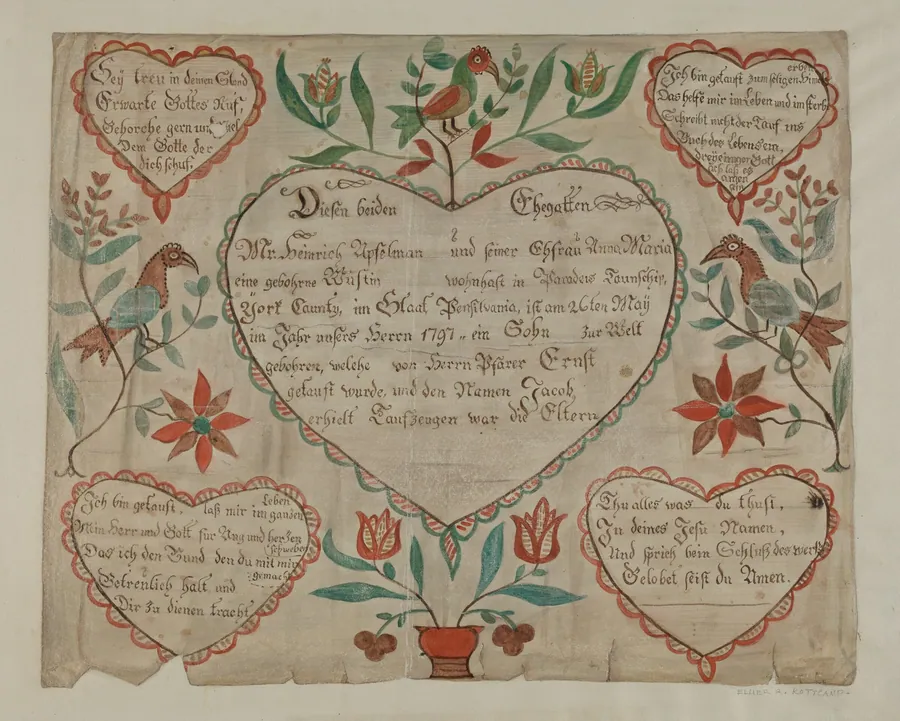 Sey treu in deinen Stand
Erwarte Gottes Ruf,
Gehorche gern und
Dem Gotte der
dich schuf.
Ich bin getauft zum seligen
Das helfe mir im Leben und im sterbe
Schreibt nicht der Tauf ins
Buch des Lebens ein,
dreyeiniger Gott
Diesen beiden Ehegatten
Mr. Heinrich Apfelman und seiner Ehfrau Anna Maria
eine gebohrne Wüstin wohnhaft in Paradeis Taunschip,
York Caunty, im Staat Pensilvania, ist am 26ten May
im Jahr unsers Herrn 1797,, ein Sohn zur Welt
gebohren, welche von Herrn Pfärer Ernst
getauft wurde, und den Namen Jacob
erhielt Taufzeugen war die Eltern
Ich bin getauft, laß mir im ganzen Leben
Mein Herr und Gott für Aug und herzen schweben
Das ich den Bund den du mit mir gemacht
Getreulich halt und
Dir zu dienen tracht
Thu alles was du thust,
In deines Jesu Namen,
Und sprich beim Schluß des werks
Gelobet seist du Amen.